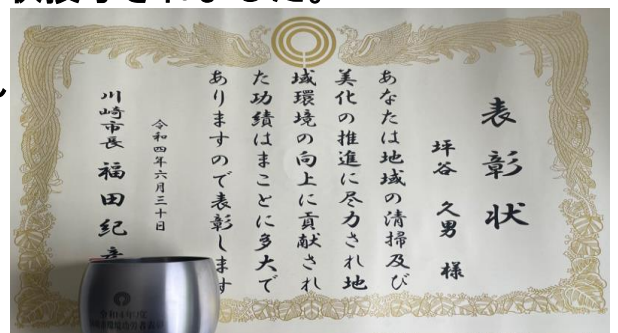 表彰状
坪谷 久男 様
あなたは地域の清掃及び
美化の推進に尽力され地
域環境の向上に貢献され
た功績はまことに多大で
ありますので表彰します
令和四年六月三十日
川崎市長 福田紀
令和4年度